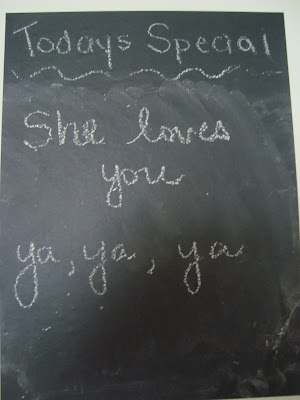 Todays Special
She loves
you
ya, ya, ya